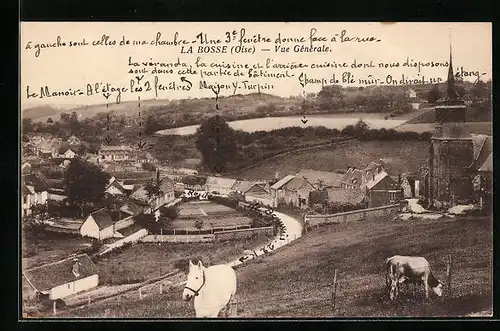 à gauche sont celles de ma chambre - Une 3e fenêtre donne face à la rue -
LA BOSSE (Oise) — Vue Générale.
La véranda, la cuisine et l'arrière-cuisine dont nous disposons
sont dans cette partie de bâtiment -
Champ de blé mûr - On dirait un étang -
Le Manoir - A l'étage les 2 fenêtres
Maison Turpin